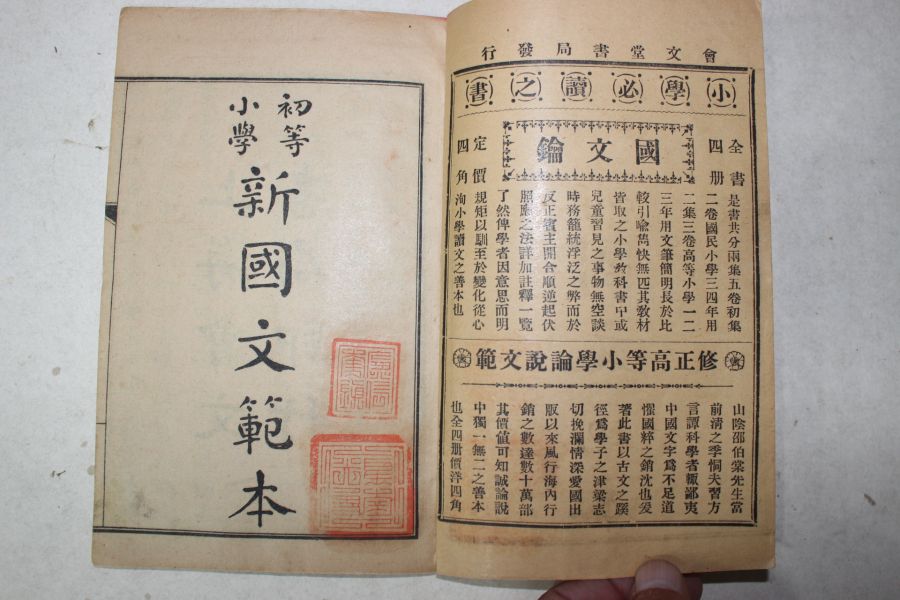 會文堂書局發行
小學必讀之書
全書四册
國文鑰
定價四角
是書共分兩集五卷初集
二卷國民小學三四年用
二集三卷高等小學一二
三年用文筆簡明長於比
較引喻雋快無匹其教材
皆取之小學教科書曰或
兒童習見之事物無空談
時務籠統浮泛之弊而於
反正賓主開合順逆起伏
照應之法詳加註釋一覽
了然俾學者因意思而明
規矩以馴至於變化從心
洵小學讀文之善本也
修正高等小學論說文範
山陰邵伯棠先生當
前清之季恫夫習方
言譚科學者輒鄙夷
中國文字爲不足道
懼國粹之銷沈也爰
著此書以古文之蹊
徑爲學子之津梁志
切挽瀾情深愛國出
版以來風行海內行
銷之數達數十萬部
其價値可知誠論說
中獨一無二之善本
也全四册價洋四角
初等
小學
新國文範本